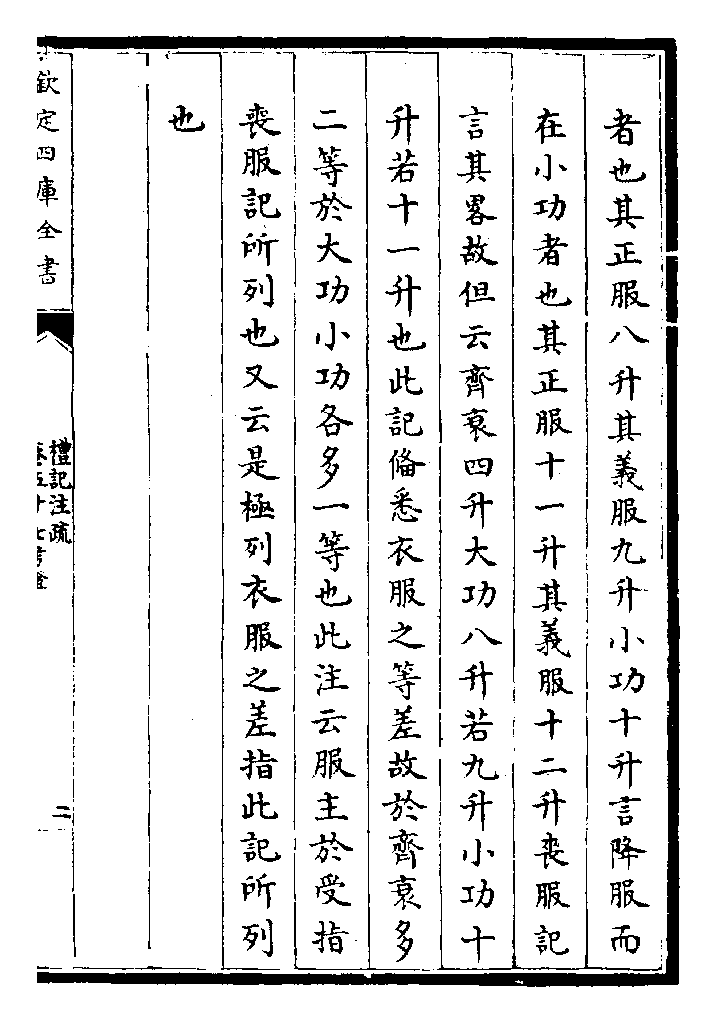 者也其正服八升其義服九升小功十升言降服而
在小功者也其正服十一升其義服十二升喪服記
言其畧故但云齊衰四升大功八升若九升小功十
升若十一升也此記備悉衣服之等差故於齊衰多
二等於大功小功各多一等也此注云服主於受指
喪服記所列也又云是極列衣服之差指此記所列
也
欽定四庫全書
禮記注疏
卷五十七考證
二